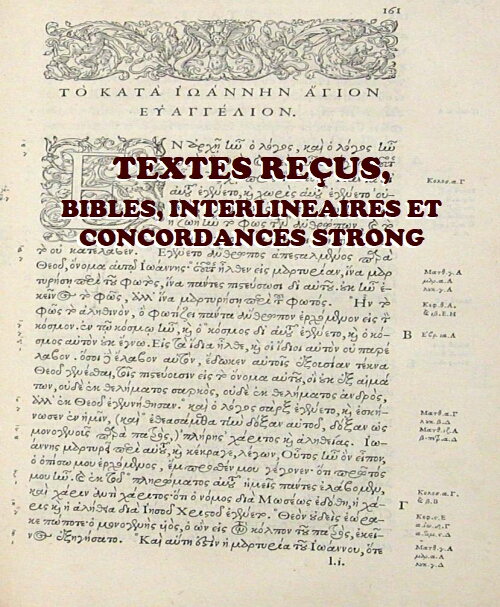 161
ΤῸ ΚΑΤΑ ἸΩΆΝΝΗΝ ἍΓΙΟΝ
ΕΥ̓ΑΓΓΈΛΙΟΝ.
ΕΝ ἀρχῇ ἦν ὁ λόγος, καὶ ὁ λόγος ἦν
TEXTES REÇUS,
BIBLES, INTERLINEAIRES ET
CONCORDANCES STRONG
το οὐ κατέλαβεν. Ἐγένετο ἄνθρωπος ἀπεσταλμένος παρὰ
Θεοῦ, ὄνομα αὐτῷ Ἰωάννης· οὗτος ἦλθεν εἰς μαρτυρίαν, ἵνα μαρ
τυρήσῃ περὶ τοῦ φωτός, ἵνα πάντες πιστεύσωσι δι' αὐτοῦ. οὐκ ἦν ἐ-
κεῖνος τὸ φῶς, ἀλλ' ἵνα μαρτυρήσῃ περὶ τοῦ φωτός. Ἦν τὸ
φῶς τὸ ἀληθινὸν, ὃ φωτίζει πάντα ἄνθρωπον ἐρχόμενον εἰς τὸν
κόσμον. ἐν τῷ κόσμῳ ἦν, καὶ ὁ κόσμος δι' αὐτοῦ ἐγένετο, καὶ ὁ κό-
σμος αὐτὸν οὐκ ἔγνω. Εἰς τὰ ἴδια ἦλθε, καὶ οἱ ἴδιοι αὐτὸν οὐ παρέ
λαβον. ὅσοι δὲ ἔλαβον αὐτὸν, ἔδωκεν αὐτοῖς ἐξουσίαν τέκνα
Θεοῦ γενέσθαι, τοῖς πιστεύουσιν εἰς τὸ ὄνομα αὐτοῦ, οἳ οὐκ ἐξ αἱμά
των, οὐδὲ ἐκ θελήματος σαρκὸς, οὐδὲ ἐκ θελήματος ἀνδρὸς,
ἀλλ' ἐκ Θεοῦ ἐγεννήθησαν. καὶ ὁ λόγος σὰρξ ἐγένετο, καὶ ἐσκή-
νωσεν ἐν ἡμῖν, (καὶ ἐθεασάμεθα τὴν δόξαν αὐτοῦ, δόξαν ὡς
μονογενοῦς παρὰ πατρὸς,) πλήρης χάριτος καὶ ἀληθείας. Ἰω-
άννης μαρτυρεῖ περὶ αὐτοῦ, καὶ κέκραγε, λέγων, Οὗτος ἦν ὃν εἶπον,
ὁ ὀπίσω μου ἐρχόμενος, ἔμπροσθέν μου γέγονεν· ὅτι πρῶτός
μου ἦν. καὶ ἐκ τοῦ πληρώματος αὐτοῦ ἡμεῖς πάντες ἐλάβομεν,
καὶ χάριν ἀντὶ χάριτος· ὅτι ὁ νόμος διὰ Μωσέως ἐδόθη, ἡ χά-
ρις καὶ ἡ ἀλήθεια διὰ Ἰησοῦ Χριστοῦ ἐγένετο. Θεὸν οὐδεὶς ἑώρα-
κε πώποτε· ὁ μονογενὴς υἱὸς, ὁ ὢν εἰς τὸν κόλπον τοῦ πατρὸς, ἐκεῖ-
νος ἐξηγήσατο. Καὶ αὕτη ἐστὶν ἡ μαρτυρία τοῦ Ἰωάννου, ὅτε
l.i.
Β
Γ